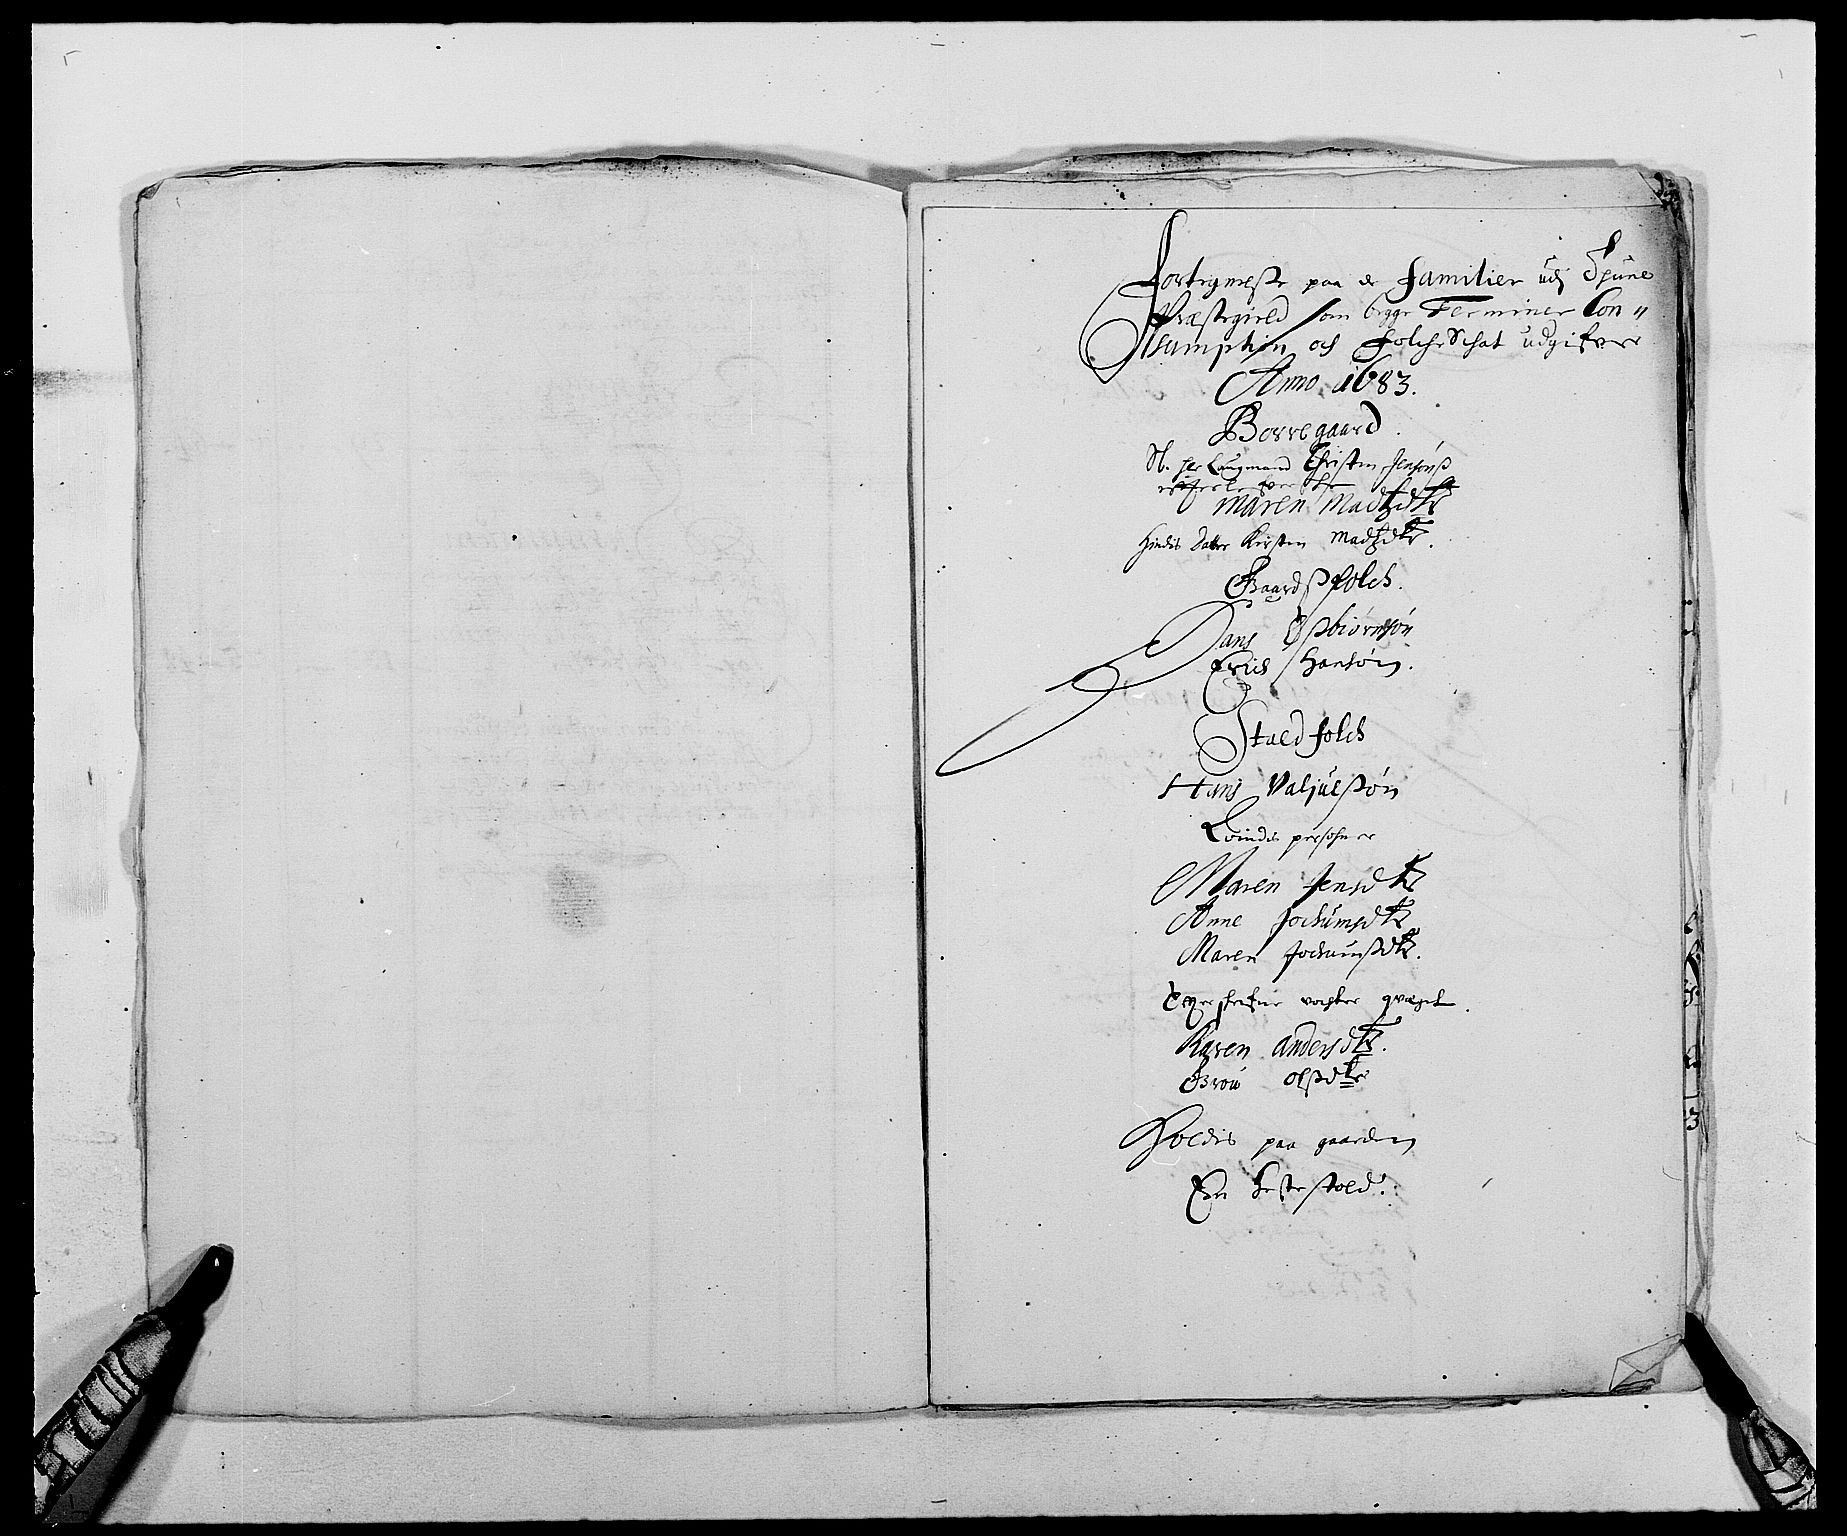 Fortegnelse paa de Familier udj Thune
Præstegield som begge Terminer Con-
sumption och FolcheSchat udgifver
Anno 1683.
Borregaard.
Sl. her Laugmand Christen Jensøns
efterlefverske
Maren Madtzdtr
Hindis datter Kirsten Madtzdtr.
Gaardsfolch.
Hans Esbiørnsøn
Erich Hansøn.
Staldfolch
Hans Paljulsøn
Qvindes persohner
Maren Jensdtr
Anne Jochumsdtr
Maren Jochumsdtr.
vogter qvæget.
Karen Andersdtr.
Groü Olsdtr
Holdis paa gaarden
En hestestald: